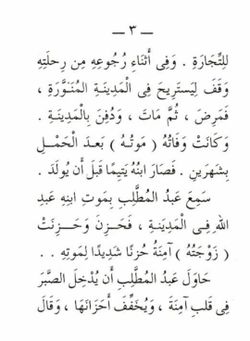 — ٣ —
لِلتِّجَارَةِ . وَفِى أَثْنَاءِ رُجُوعِهِ مِن رِحلَتِهِ
وَقَفَ لِيَستَرِيحَ فِى المَدِينَةِ المُنَوَّرَةِ ،
فَمَرِضَ ، ثُمَّ مَاتَ ، وَدُفِنَ بِالْمَدِينَـةِ .
وَكَانَتْ وَفَاتُهُ ( مَوتُـهُ ) بَعـدَ الحَمْـلِ
بِشَهرَينِ . فَصَارَ ابنُهُ يَتِيمًا قَبلَ أَن يُولَدَ .
سَمِعَ عَبدُ المُطَّلِبِ بِمَوتِ ابنِهِ عَبدِ
اللهِ فِـى المَدِينَـةِ ، فَحَـزِنَ وَحَـزِنَـتْ
( زَوْجَتُهُ ) آمِنَةُ حُزنًا شَدِيدًا لِمَوتِهِ . .
حَاوَلَ عَبدُ المُطَّلِبِ أَن يُدْخِلَ الصَّبرَ
فِى قَلبِ آمِنَةَ ، وَيُخَفِّفَ أَحزَانَهَا ، وَقَالَ